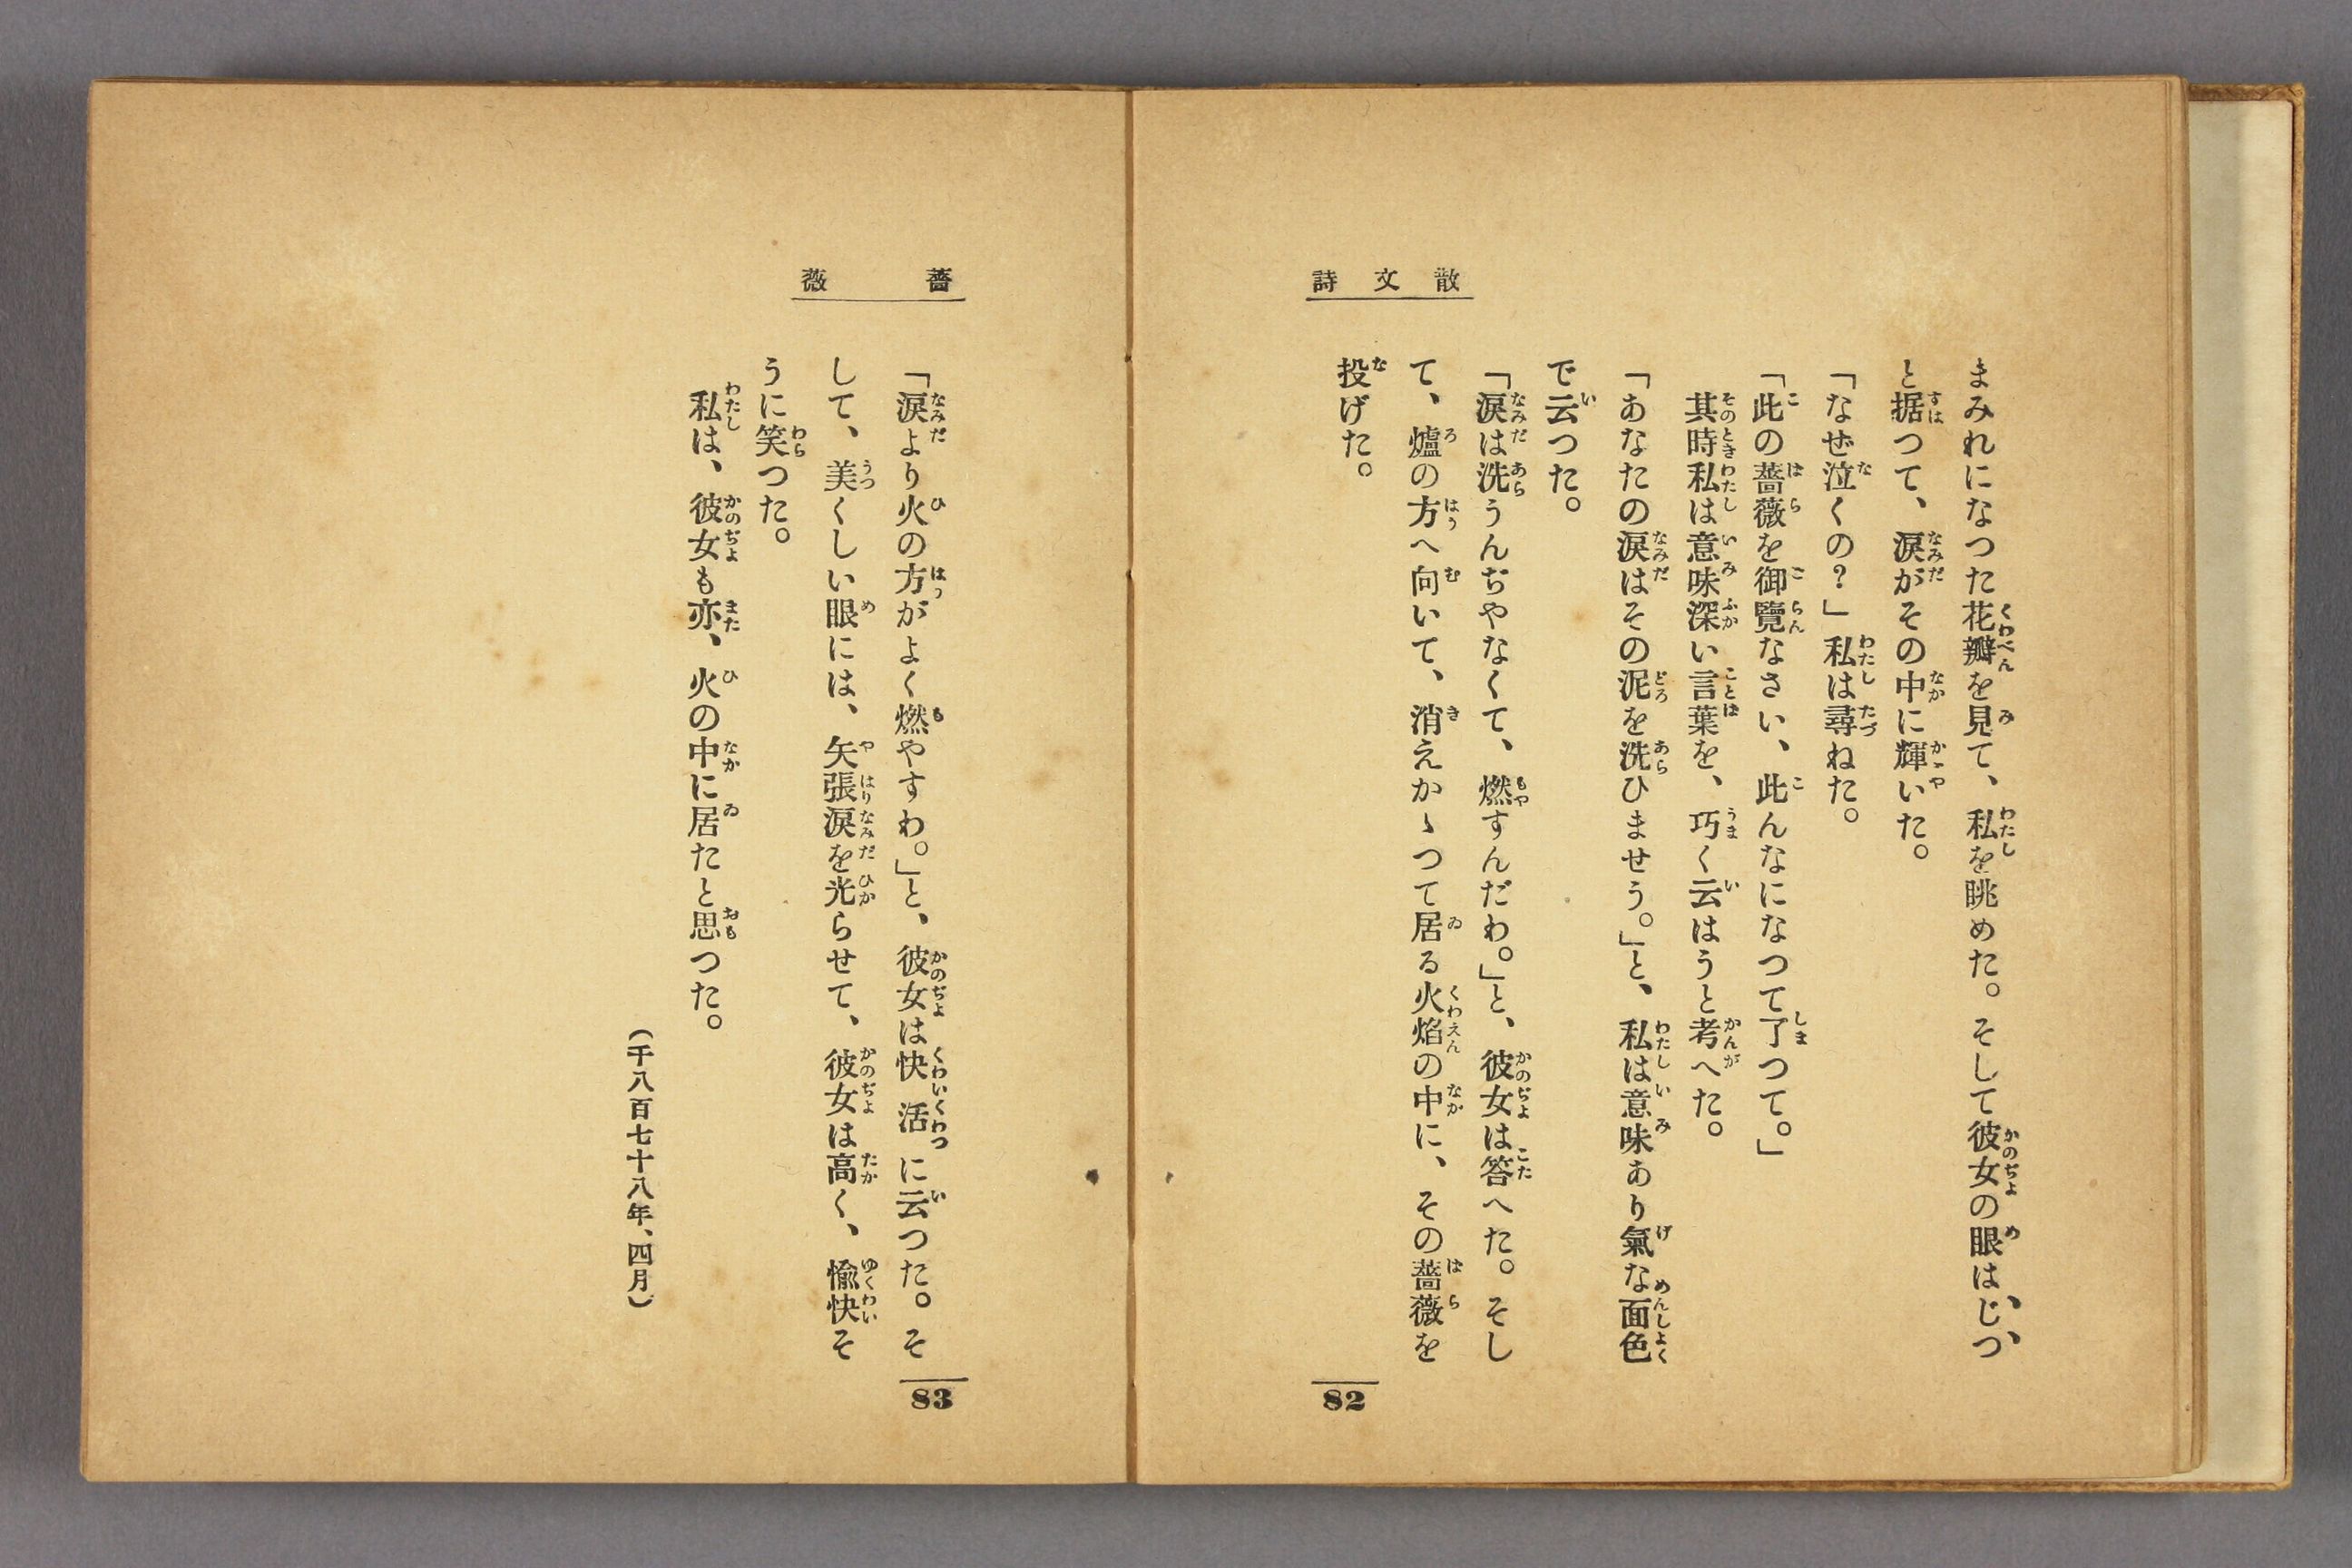 散文詩
まみれになつた花瓣を見て、私を眺めた。そして彼女の眼はじつ
と据つて、涙がその中に輝いた。
「なぜ泣くの?」私は尋ねた。
「此の薔薇を御覽なさい、此んなになつて了つて。」
其時私は意味深い言葉を、巧く云はうと考へた。
「あなたの涙はその泥を洗ひませう。」と、私は意味あり氣な面色
で云つた。
「涙は洗うんぢやなくて、燃すんだわ。」と、彼女は答へた。そし
て、爐の方へ向いて、消えかゝつて居る火焰の中に、その薔薇を
投げた。
82
薔薇
「涙より火の方がよく燃やすわ。」と、彼女は快活に云つた。そ
して、美くしい眼には、矢張涙を光らせて、彼女は高く、愉快そ
うに笑つた。
私は、彼女も亦、火の中に居たと思つた。
(千八百七十八年、四月)
83